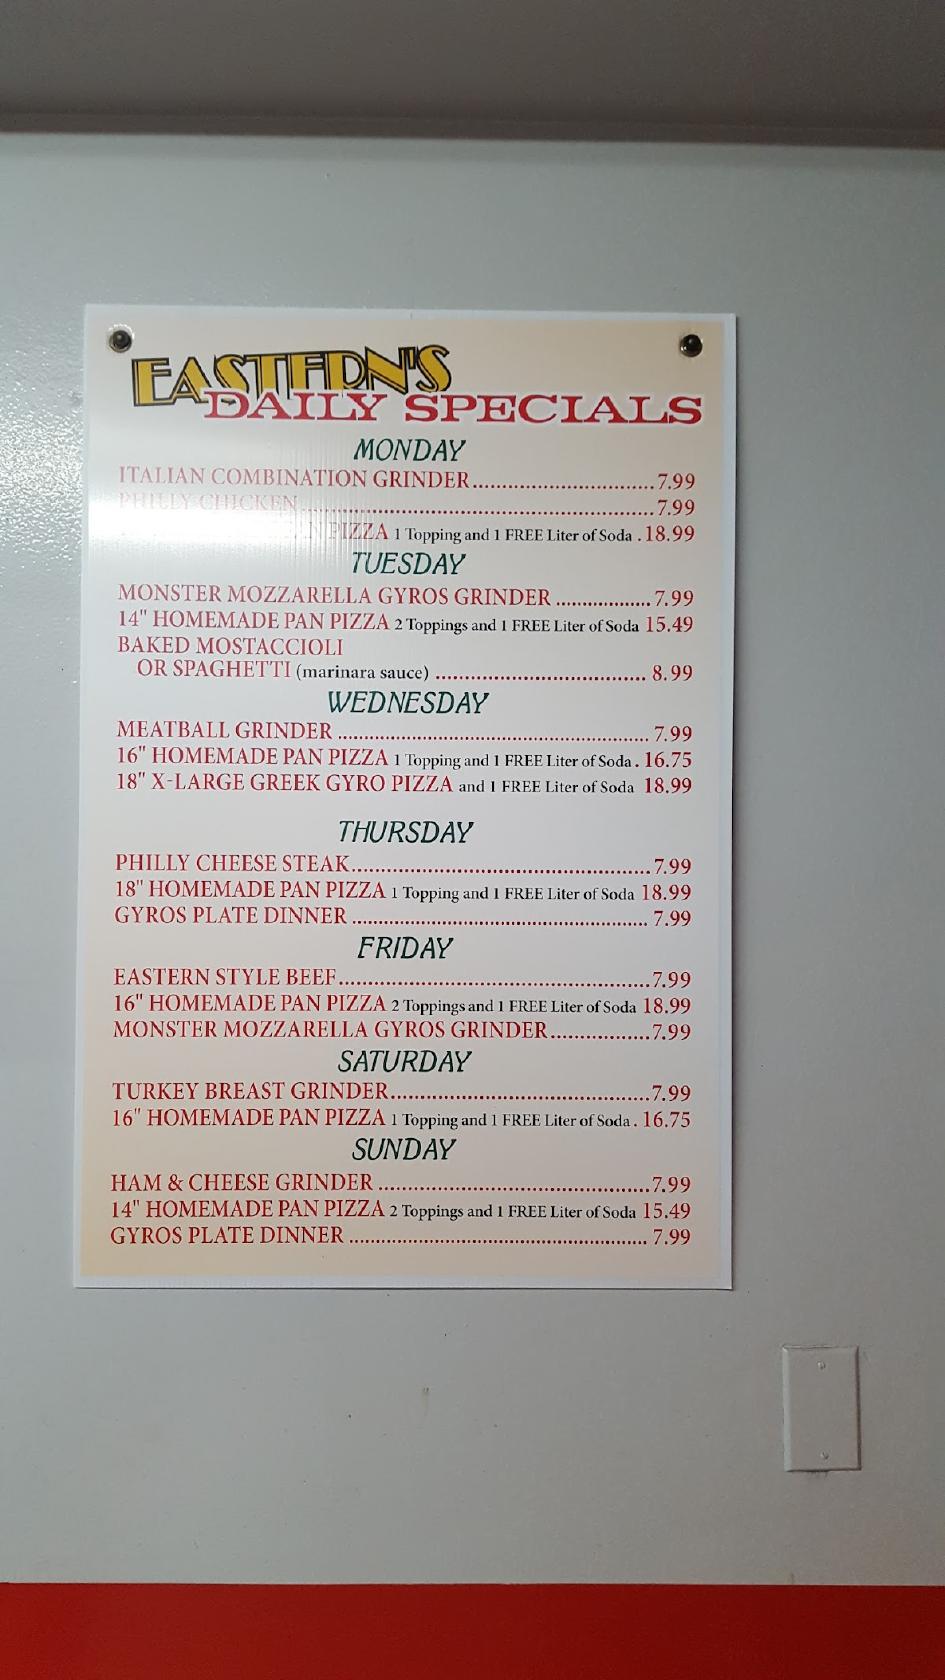 EASTERN'S
DAILY SPECIALS
MONDAY
ITALIAN COMBINATION GRINDER..............................7.99
PHILLY CHICKEN..........................................................7.99
PAN PIZZA 1 Topping and 1 FREE Liter of Soda .18.99
TUESDAY
MONSTER MOZZARELLA GYROS GRINDER ..................7.99
14" HOMEMADE PAN PIZZA 2 Toppings and 1 FREE Liter of Soda 15.49
BAKED MOSTACCIOLI
OR SPAGHETTI (marinara sauce) ..................................... 8.99
WEDNESDAY
MEATBALL GRINDER ..................................................... 7.99
16" HOMEMADE PAN PIZZA 1 Topping and 1 FREE Liter of Soda. 16.75
18" X-LARGE GREEK GYRO PIZZA and 1 FREE Liter of Soda 18.99
THURSDAY
PHILLY CHEESE STEAK...................................................7.99
18" HOMEMADE PAN PIZZA 1 Topping and 1 FREE Liter of Soda 18.99
GYROS PLATE DINNER ................................................... 7.99
FRIDAY
EASTERN STYLE BEEF.....................................................7.99
16" HOMEMADE PAN PIZZA 2 Toppings and 1 FREE Liter of Soda 18.99
MONSTER MOZZARELLA GYROS GRINDER.................7.99
SATURDAY
TURKEY BREAST GRINDER............................................7.99
16" HOMEMADE PAN PIZZA 1 Topping and 1 FREE Liter of Soda. 16.75
SUNDAY
HAM & CHEESE GRINDER ..............................................7.99
14" HOMEMADE PAN PIZZA 2 Toppings and 1 FREE Liter of Soda 15.49
GYROS PLATE DINNER ................................................... 7.99